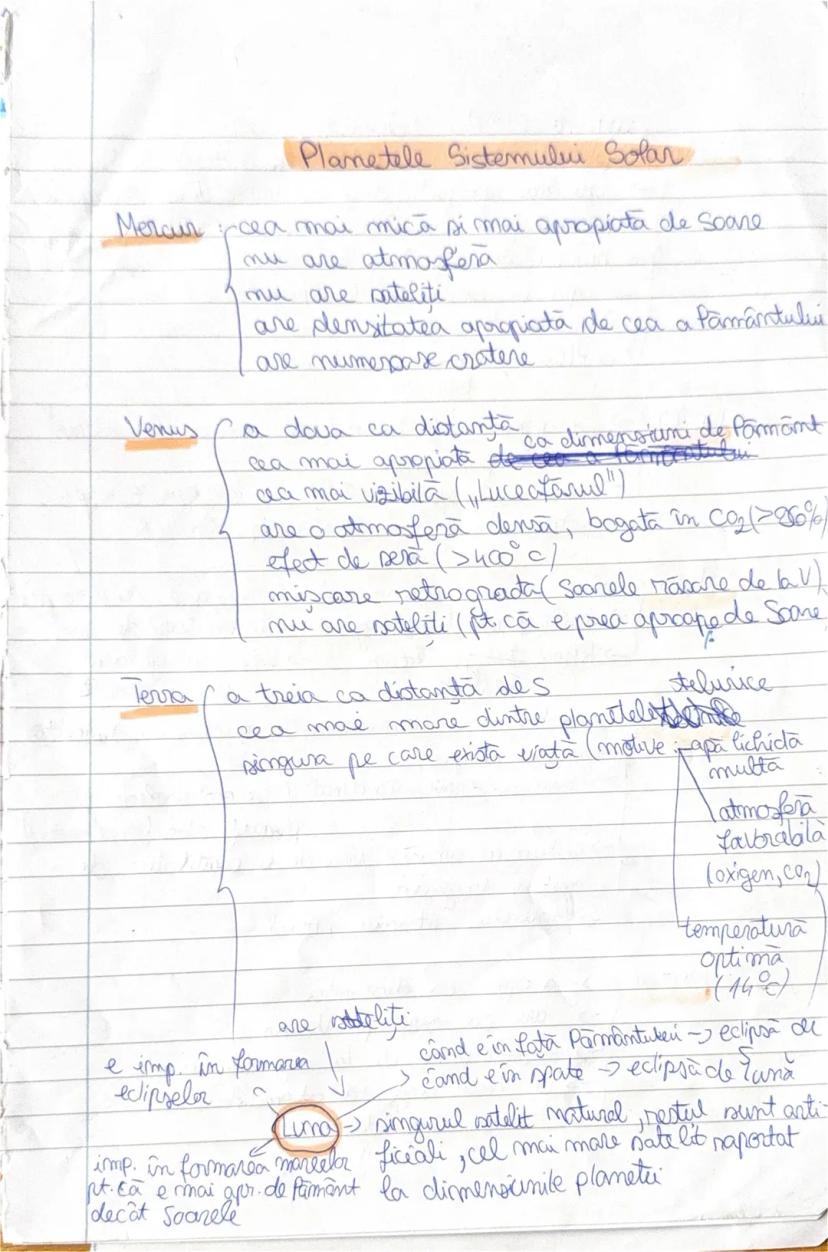 Planetele Sistemului Solar
Mercur : cea mai mică si mai apropiată de Soare
nu are atmosferă
nu are sateliți
are densitatea apropiată de cea a Pământului
are numeroase cratere
Venus a doua ca distanță
ca dimensiuni de Pământ
cea mai apropiată de cea a Pământului
cea mai vizibilă („Luceafărul")
are o atmosferă densă, bogată în CO2 (>
efect de seră (>400°C)
mișcare retrogradă (Soarele răsare de la V)
nu are sateliți (pt. că e prea aproape de Soare
Terra a treia ca distanță de S
telurice
cea mai mare dintre planetele
singura pe care exista viață (motive : apă lichidă
multă
atmosferă
favorabilă
(oxigen, CO2)
temperatură
optimă
(14°C)
are sateliți
când e în fața Pământului -> eclipsă de
e imp. în formarea
când e în spate -> eclipsă de Lună
eclipselor
Luna -> singurul satelit natural, restul sunt arti-
ficiali, cel mai mare satelit raportat
la dimensiunile planetei
imp. în formarea mareelor
pt. că e mai apr. de Pământ
decât Soarele